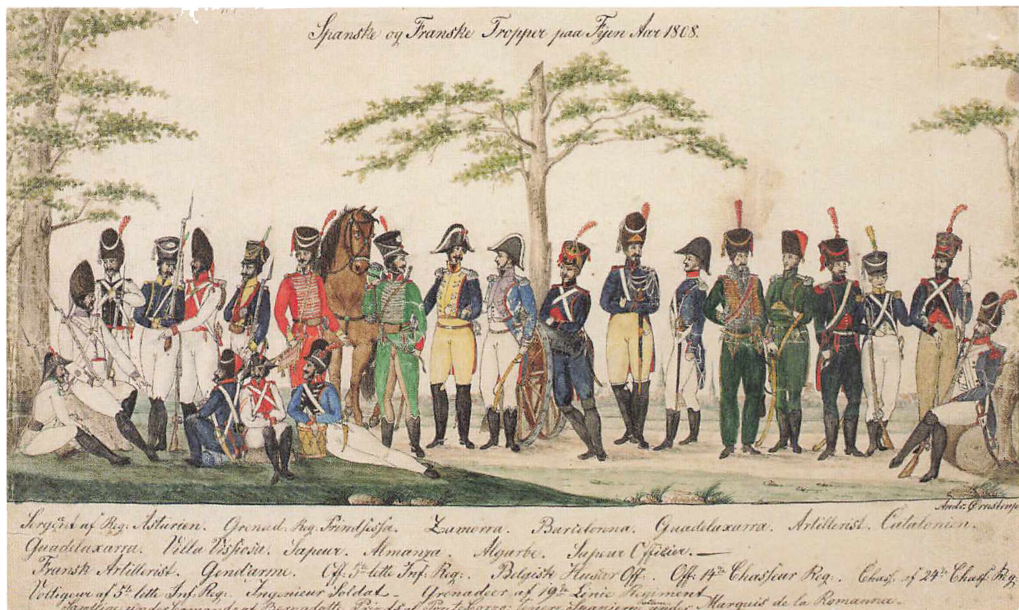 Spanske og Franske Tropper paa Fyen Aar 1808.
Andr. Ørnstrup
Sergent af Reg. Asturien. Grenad. Reg. Prindsessa. Zamorra. Barcelonna. Guadelaxarra. Artillerist. Catalonien.
Guadelaxarra. Villa Visiosa. Sapeur. Almanza. Algarbe. Sapeur Officier. —
Fransk Artillerist. Gendarme. Off: 5te lette Inf. Reg. Belgisk Husar Off. Off: 14de Chasseur Reg. Chass. af 24de Chass Reg.
Voltigeur af 5te lette Inf. Reg. Ingenieur Soldat. Grenadeer af 19de Linie Regiment
Samtlige under Bernadotte Marquis de la Romanna.